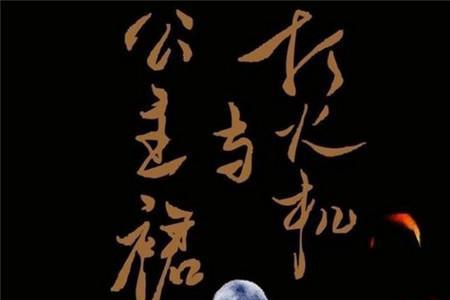 打火机
与
公主裙